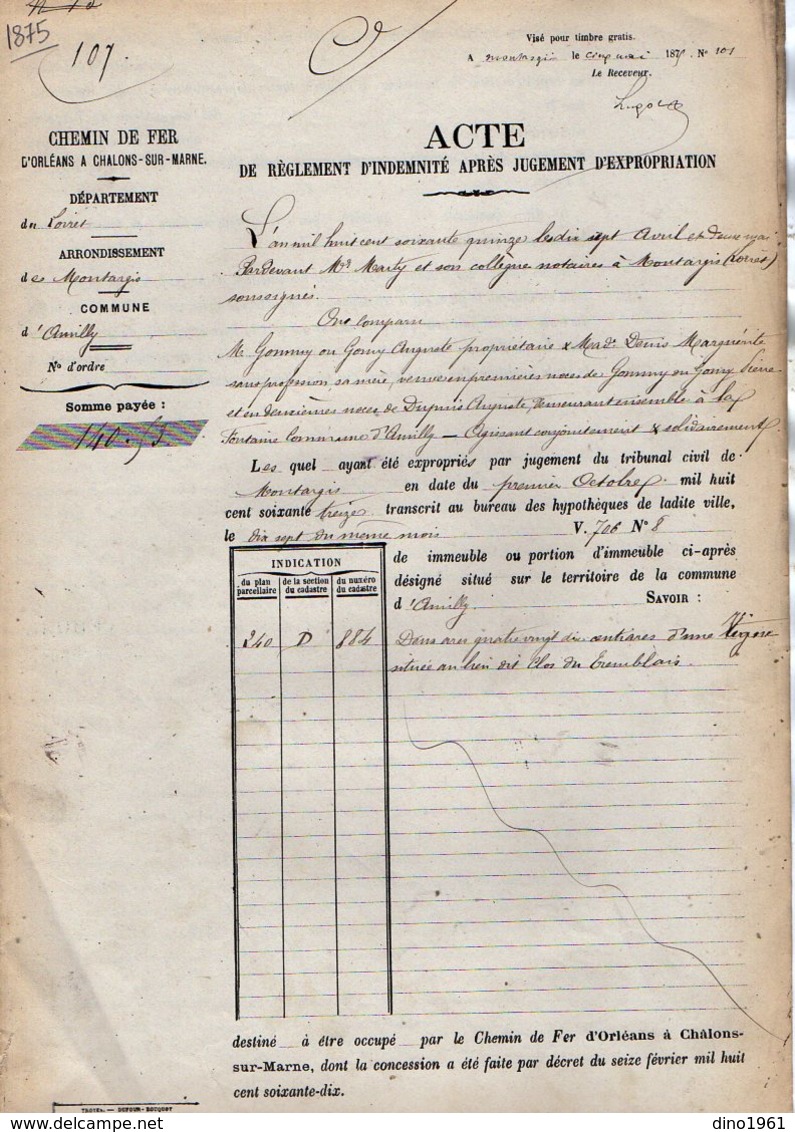 1875
107
Visé pour timbre gratis.
A Montargis le cinq mai 1875 N° 101
Le Receveur.
CHEMIN DE FER
D'ORLÉANS A CHALONS-SUR-MARNE.
DÉPARTEMENT
du Loiret
ARRONDISSEMENT
de Montargis
COMMUNE
d'Amilly
No d'ordre
Somme payée :
140.53
ACTE
DE RÈGLEMENT D'INDEMNITÉ APRÈS JUGEMENT D'EXPROPRIATION
L'an mil huit cent soixante quinze les dix sept Avril et deux mai
Pardevant Me Marty et son collègue notaires à Montargis (Loiret)
soussignés.
Ont comparu
M. Gommy ou Gomy Auguste propriétaire & Made Denis Marguérite
sans profession sa mère, veuve en premières noces de Gommy ou Gomy Pierre
et en deuxièmes noces de Dupuis Auguste, demeurant ensemble à la
Fontaine Commune d'Amilly — Agissant conjointement & solidairement
Les quel ayant été expropriés par jugement du tribunal civil de
Montargis en date du premier Octobre mil huit
cent soixante treize transcrit au bureau des hypothèques de ladite ville,
le dix sept du même mois V. 706 N° 8
INDICATION
du plan parcellaire de la section du cadastre du numéro du cadastre
240 D 884
de immeuble ou portion d'immeuble ci-après
désigné situé sur le territoire de la commune
d'Amilly SAVOIR :
Deux ares quatre vingt dix centiares d'une Vigne
située au lieu dit Clos du Tremblais.
destiné à être occupé par le Chemin de Fer d'Orléans à Châlons-
sur-Marne, dont la concession a été faite par décret du seize février mil huit
cent soixante-dix.
TROYES. — DUFOUR-BOUQUOT
dino1961